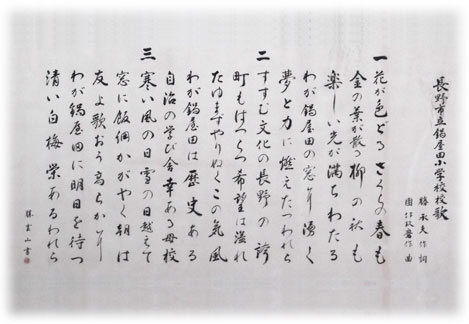 長野市立鍋屋田小学校校歌
勝承夫作詞
團伊玖磨作曲
一 花が色どるさくらの春も
金の葉が散る柳の秋も
楽しい光が満ちわたる
わが鍋屋田の窓に湧く
夢と力に燃えたつわれら
二 すすむ文化の長野の誇
町もはつらつ希望は溢れ
たゆまずやりぬくこの気風
わが鍋屋田は歴史ある
自治の学び舎幸ある母校
三 寒い風の日雪の日越えて
窓に飯綱かがやく朝は
友よ歌おう高らかに
わが鍋屋田に明日を待つ
清い白梅栄あるわれら